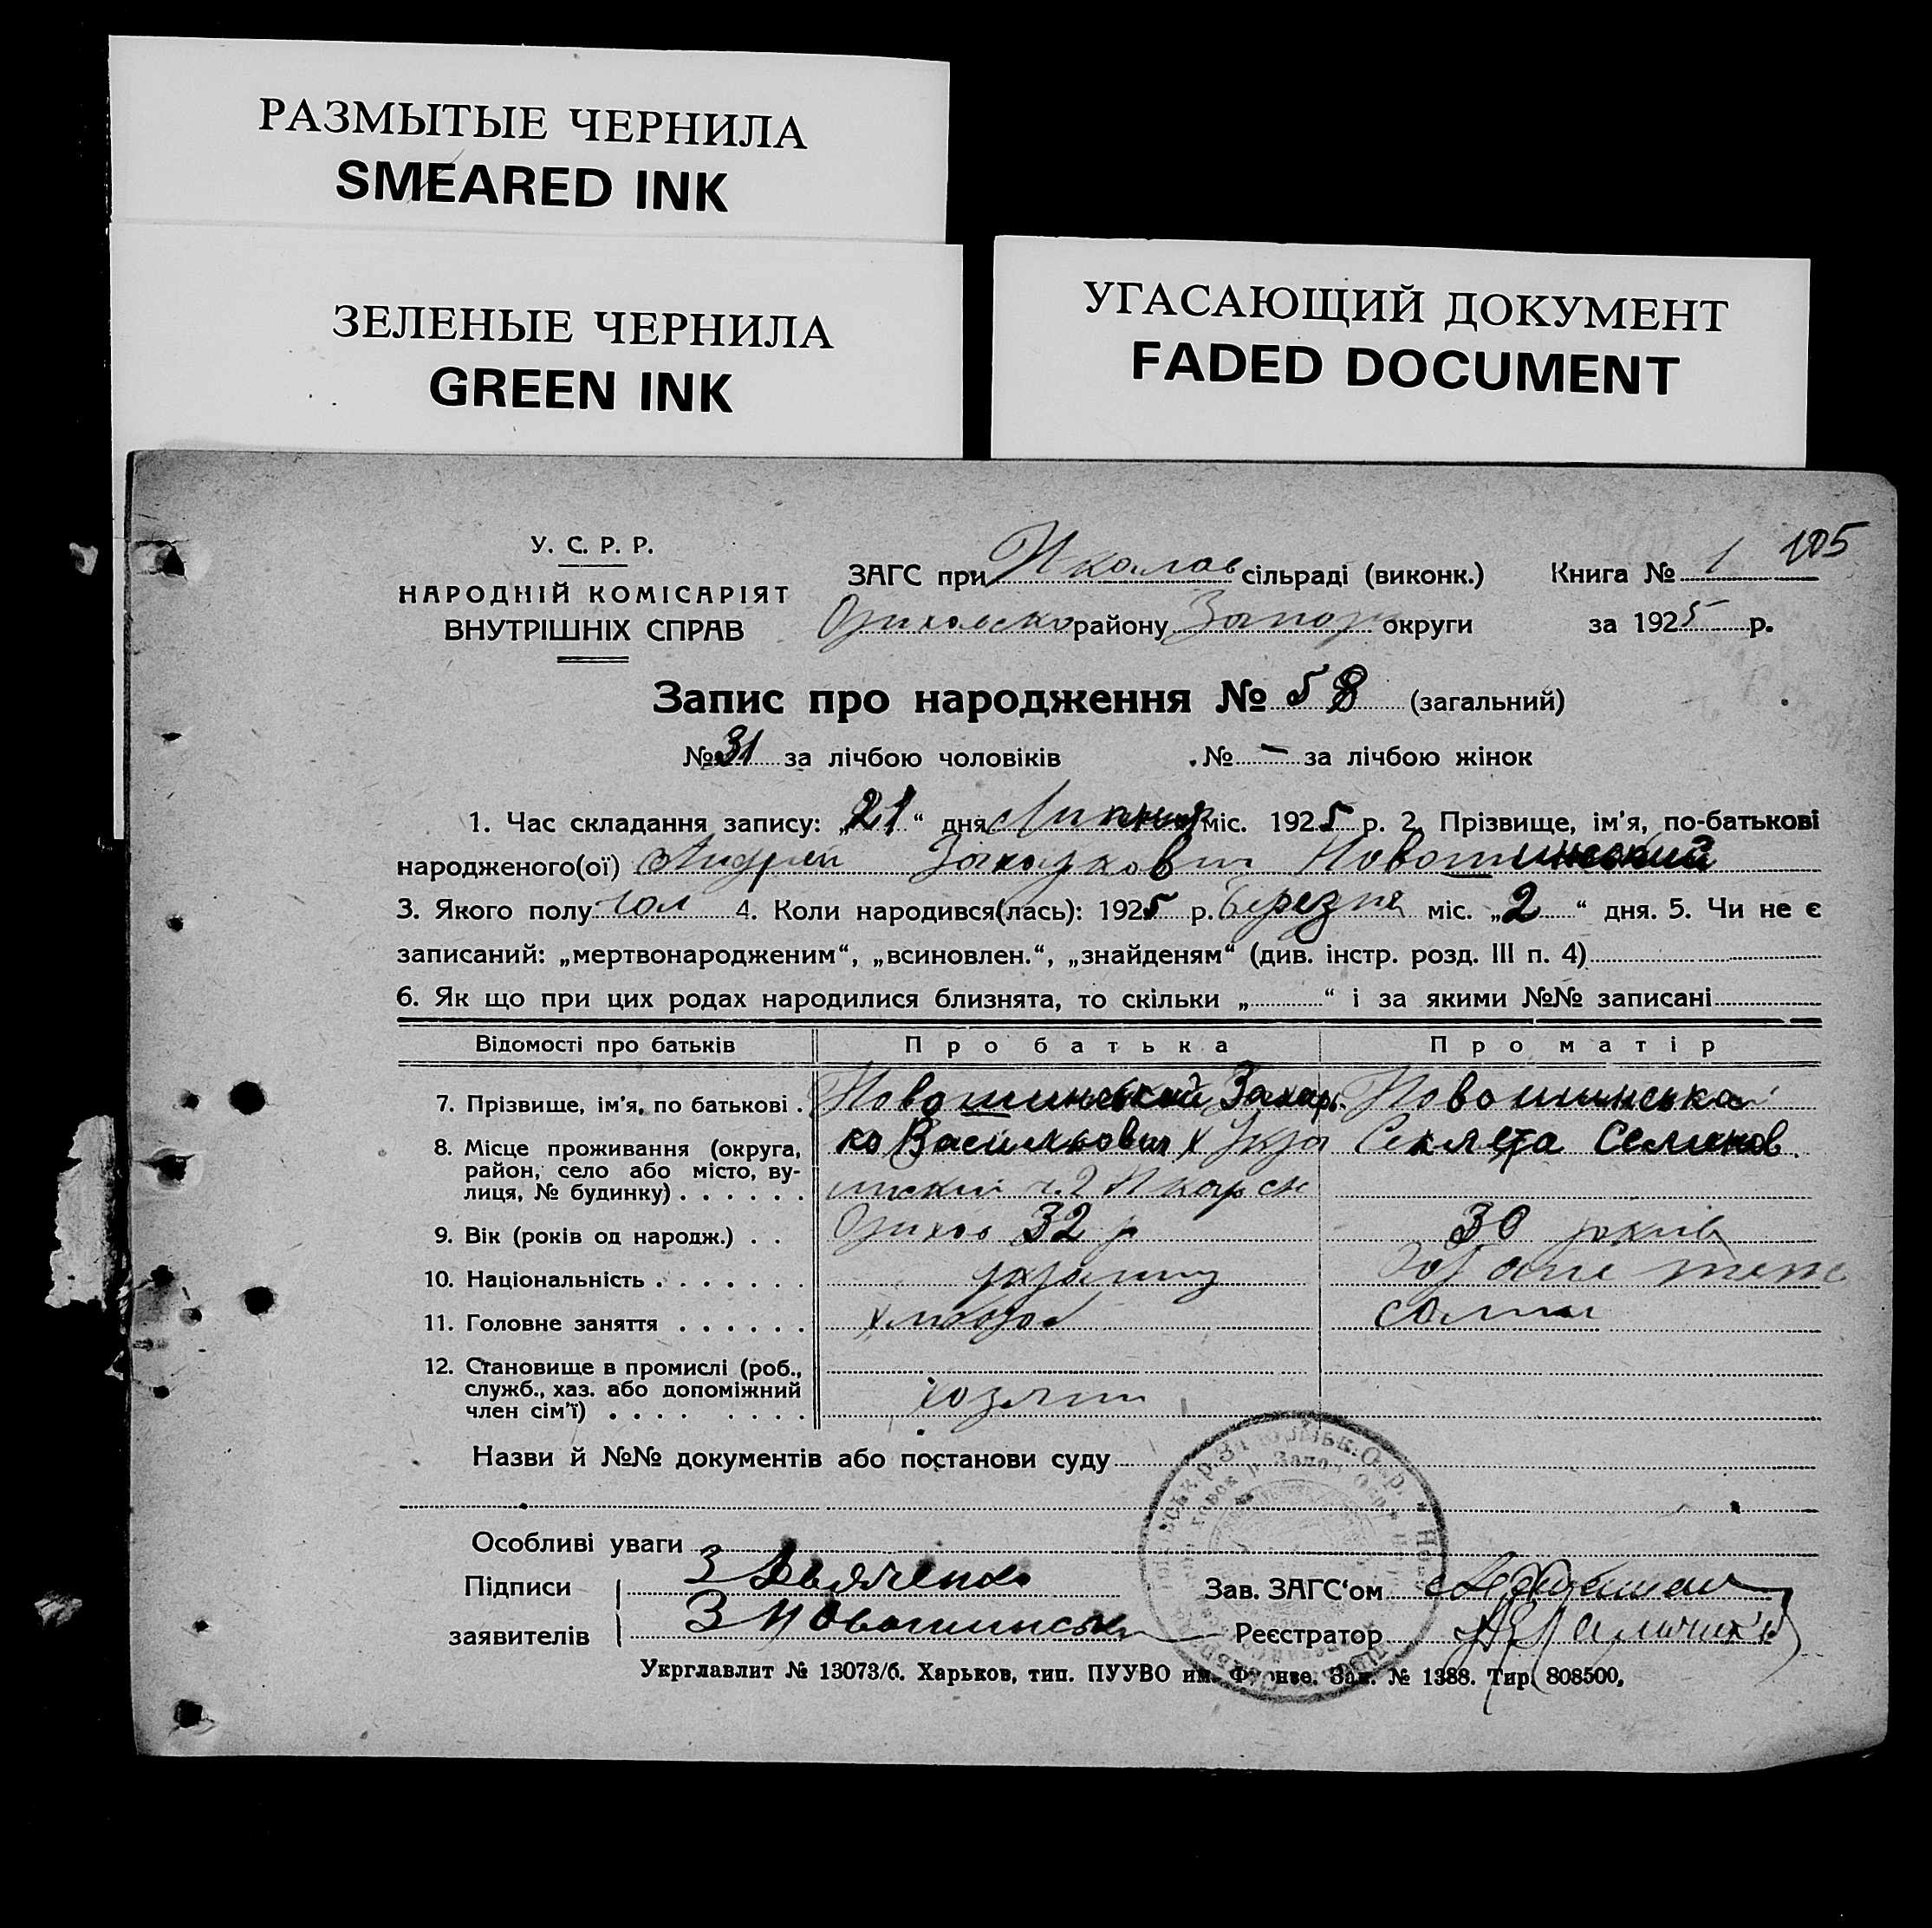 РАЗМЫТЫЕ ЧЕРНИЛА
SMEARED INK
ЗЕЛЕНЫЕ ЧЕРНИЛА
GREEN INK
УГАСАЮЩИЙ ДОКУМЕНТ
FADED DOCUMENT
105
У. С. Р. Р.
НАРОДНІЙ КОМІСАРІЯТ
ВНУТРІШНІХ СПРАВ
ЗАГС при сільраді (виконк.) Книга № 1
району Запор округи за 1925 р.
Запис про народження № 58 (загальний)
№ 31 за лічбою чоловіків № - за лічбою жінок
1. Час складання запису: „21“ дня Липня міс. 1925 р. 2. Прізвище, ім'я, по-батькові
народженого(ої) Андрей Захаркович Новошинський
3. Якого полу чол 4. Коли народився(лась): 1925 р. Березня міс. „2“ дня. 5. Чи не є
записаний: „мертвонародженим“, „всиновлен.“, „знайденям“ (див. інстр. розд. III п. 4)
6. Як що при цих родах народилися близнята, то скільки „ “ і за якими №№ записані
Відомості про батьків Про батька Про матір
7. Прізвище, ім'я, по батькові . Новошинський Захарь- Новошинська
8. Місце проживання (округа, ко Васильович Секлета Семенов.
район, село або місто, ву-
лиця, № будинку) . . . . . .
9. Вік (років од народж.) . . 32 р 30 років
10. Національність . . . . . . . українец
11. Головне заняття . . . . . . хлібороб
12. Становище в промислі (роб.,
служб., хаз. або допоміжний
член сім'ї) . . . . . . . . хозяин
Назви й №№ документів або постанови суду
Особливі уваги
Підписи З Дьяченко Зав. ЗАГС'ом
заявителів З Новошинськ Реєстратор
Укрглавлит № 13073/б. Харьков, тип. ПУУВО им. Фрунзе. Зак. № 1388. Тир. 808500.